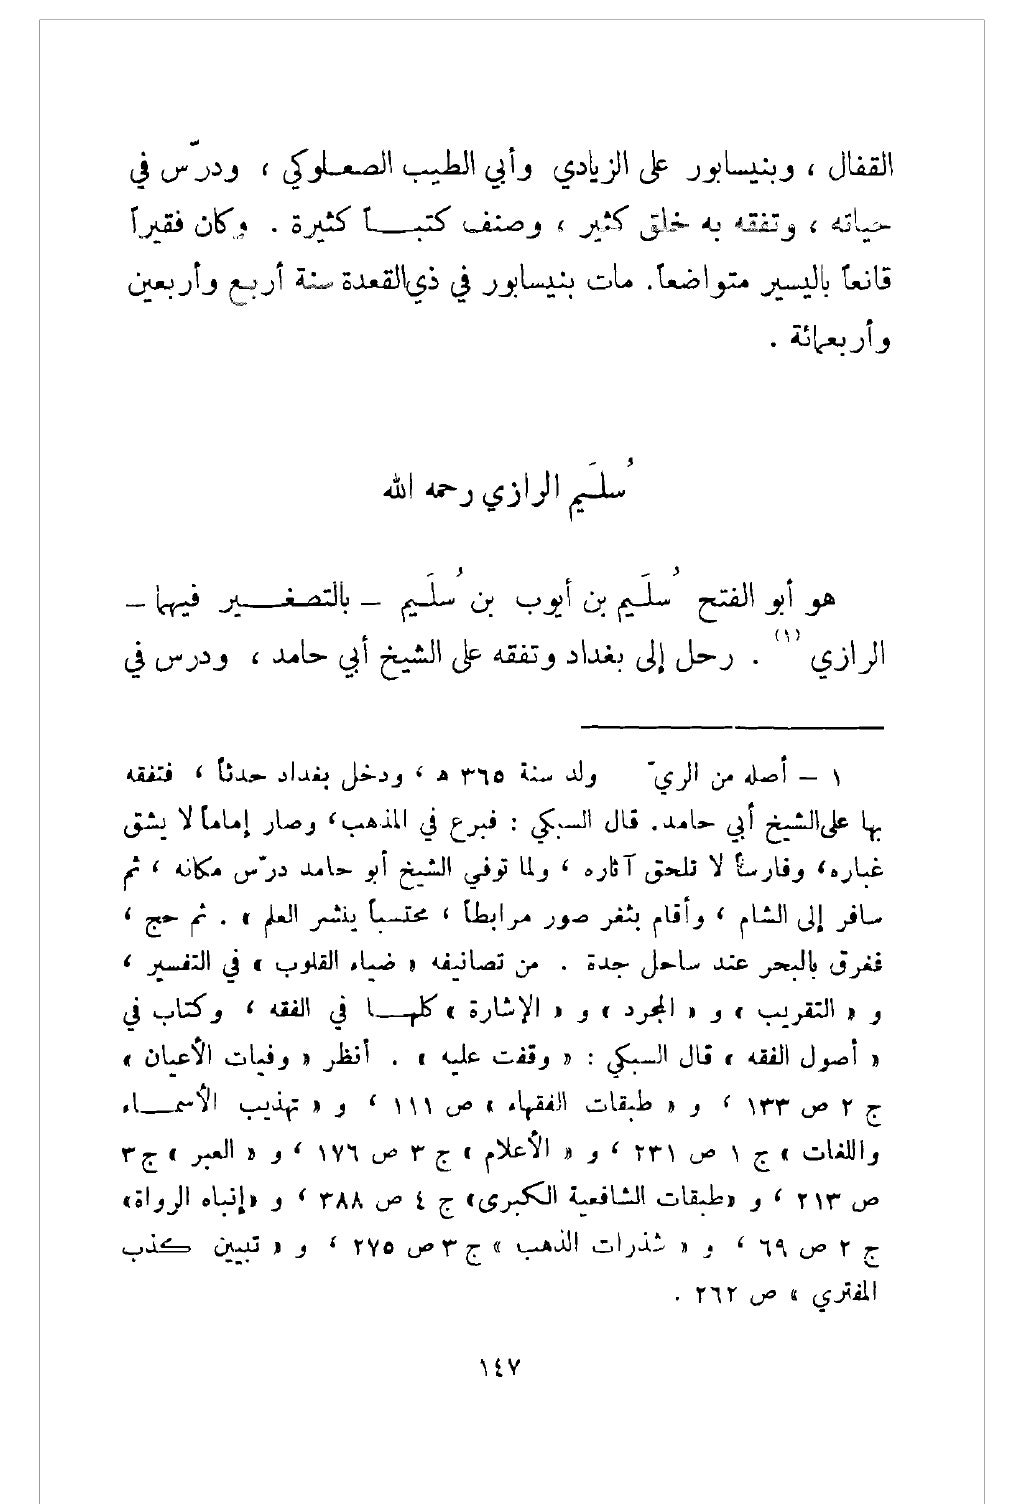 القفال ، وبنيسابور على الزيادي وأبي الطيب الصعلوكي ، ودرّس في
حياته ، وتفقه به خلق كثير ، وصنف كتبـاً كثيرة . وكان فقيراً
قانعاً باليسير متواضعاً. مات بنيسابور في ذي القعدة سنة أربع وأربعين
وأربعمائة .
سُلَيم الرازي رحمه الله
هو أبو الفتح سُلَيم بن أيوب بن سُلَيم – بالتصغير فيهما –
الرازي (١) . رحل إلى بغداد وتفقه على الشيخ أبي حامد ، ودرس في
١ – أصله من الريّ ولد سنة ٣٦٥ ه ، ودخل بغداد حدثاً ، فتفقه
بها على الشيخ أبي حامد. قال السبكي : فبرع في المذهب، وصار إماماً لا يشق
غباره، وفارساً لا تلحق آثاره ، ولما توفي الشيخ أبو حامد درّس مكانه ، ثم
سافر إلى الشام ، وأقام بثغر صور مرابطاً ، محتسباً ينشر العلم » . ثم حج ،
ففرق بالبحر عند ساحل جدة . من تصانيفه « ضياء القلوب » في التفسير ،
و « التقريب » و « المجرد » و « الإشارة » كلهـا في الفقه ، وكتاب في
« أصول الفقه » قال السبكي : « وقفت عليه » . أنظر « وفيات الأعيان »
ج ٢ ص ١٣٣ ، و « طبقات الفقهاء » ص ١١١ ، و « تهذيب الأسمـاء
واللغات » ج ١ ص ٢٣١ ، و « الأعلام » ج ٣ ص ١٧٦ ، و « العبر » ج٣
ص ٢١٣ ، و «طبقات الشافعية الكبرى» ج ٤ ص ٣٨٨ ، و «إنباه الرواة»
ج ٢ ص ٦٩ ، و « شذرات الذهب » ج ٣ ص ٢٧٥ ، و « تبيين كذب
المفتري » ص ٢٦٢ .
١٤٧